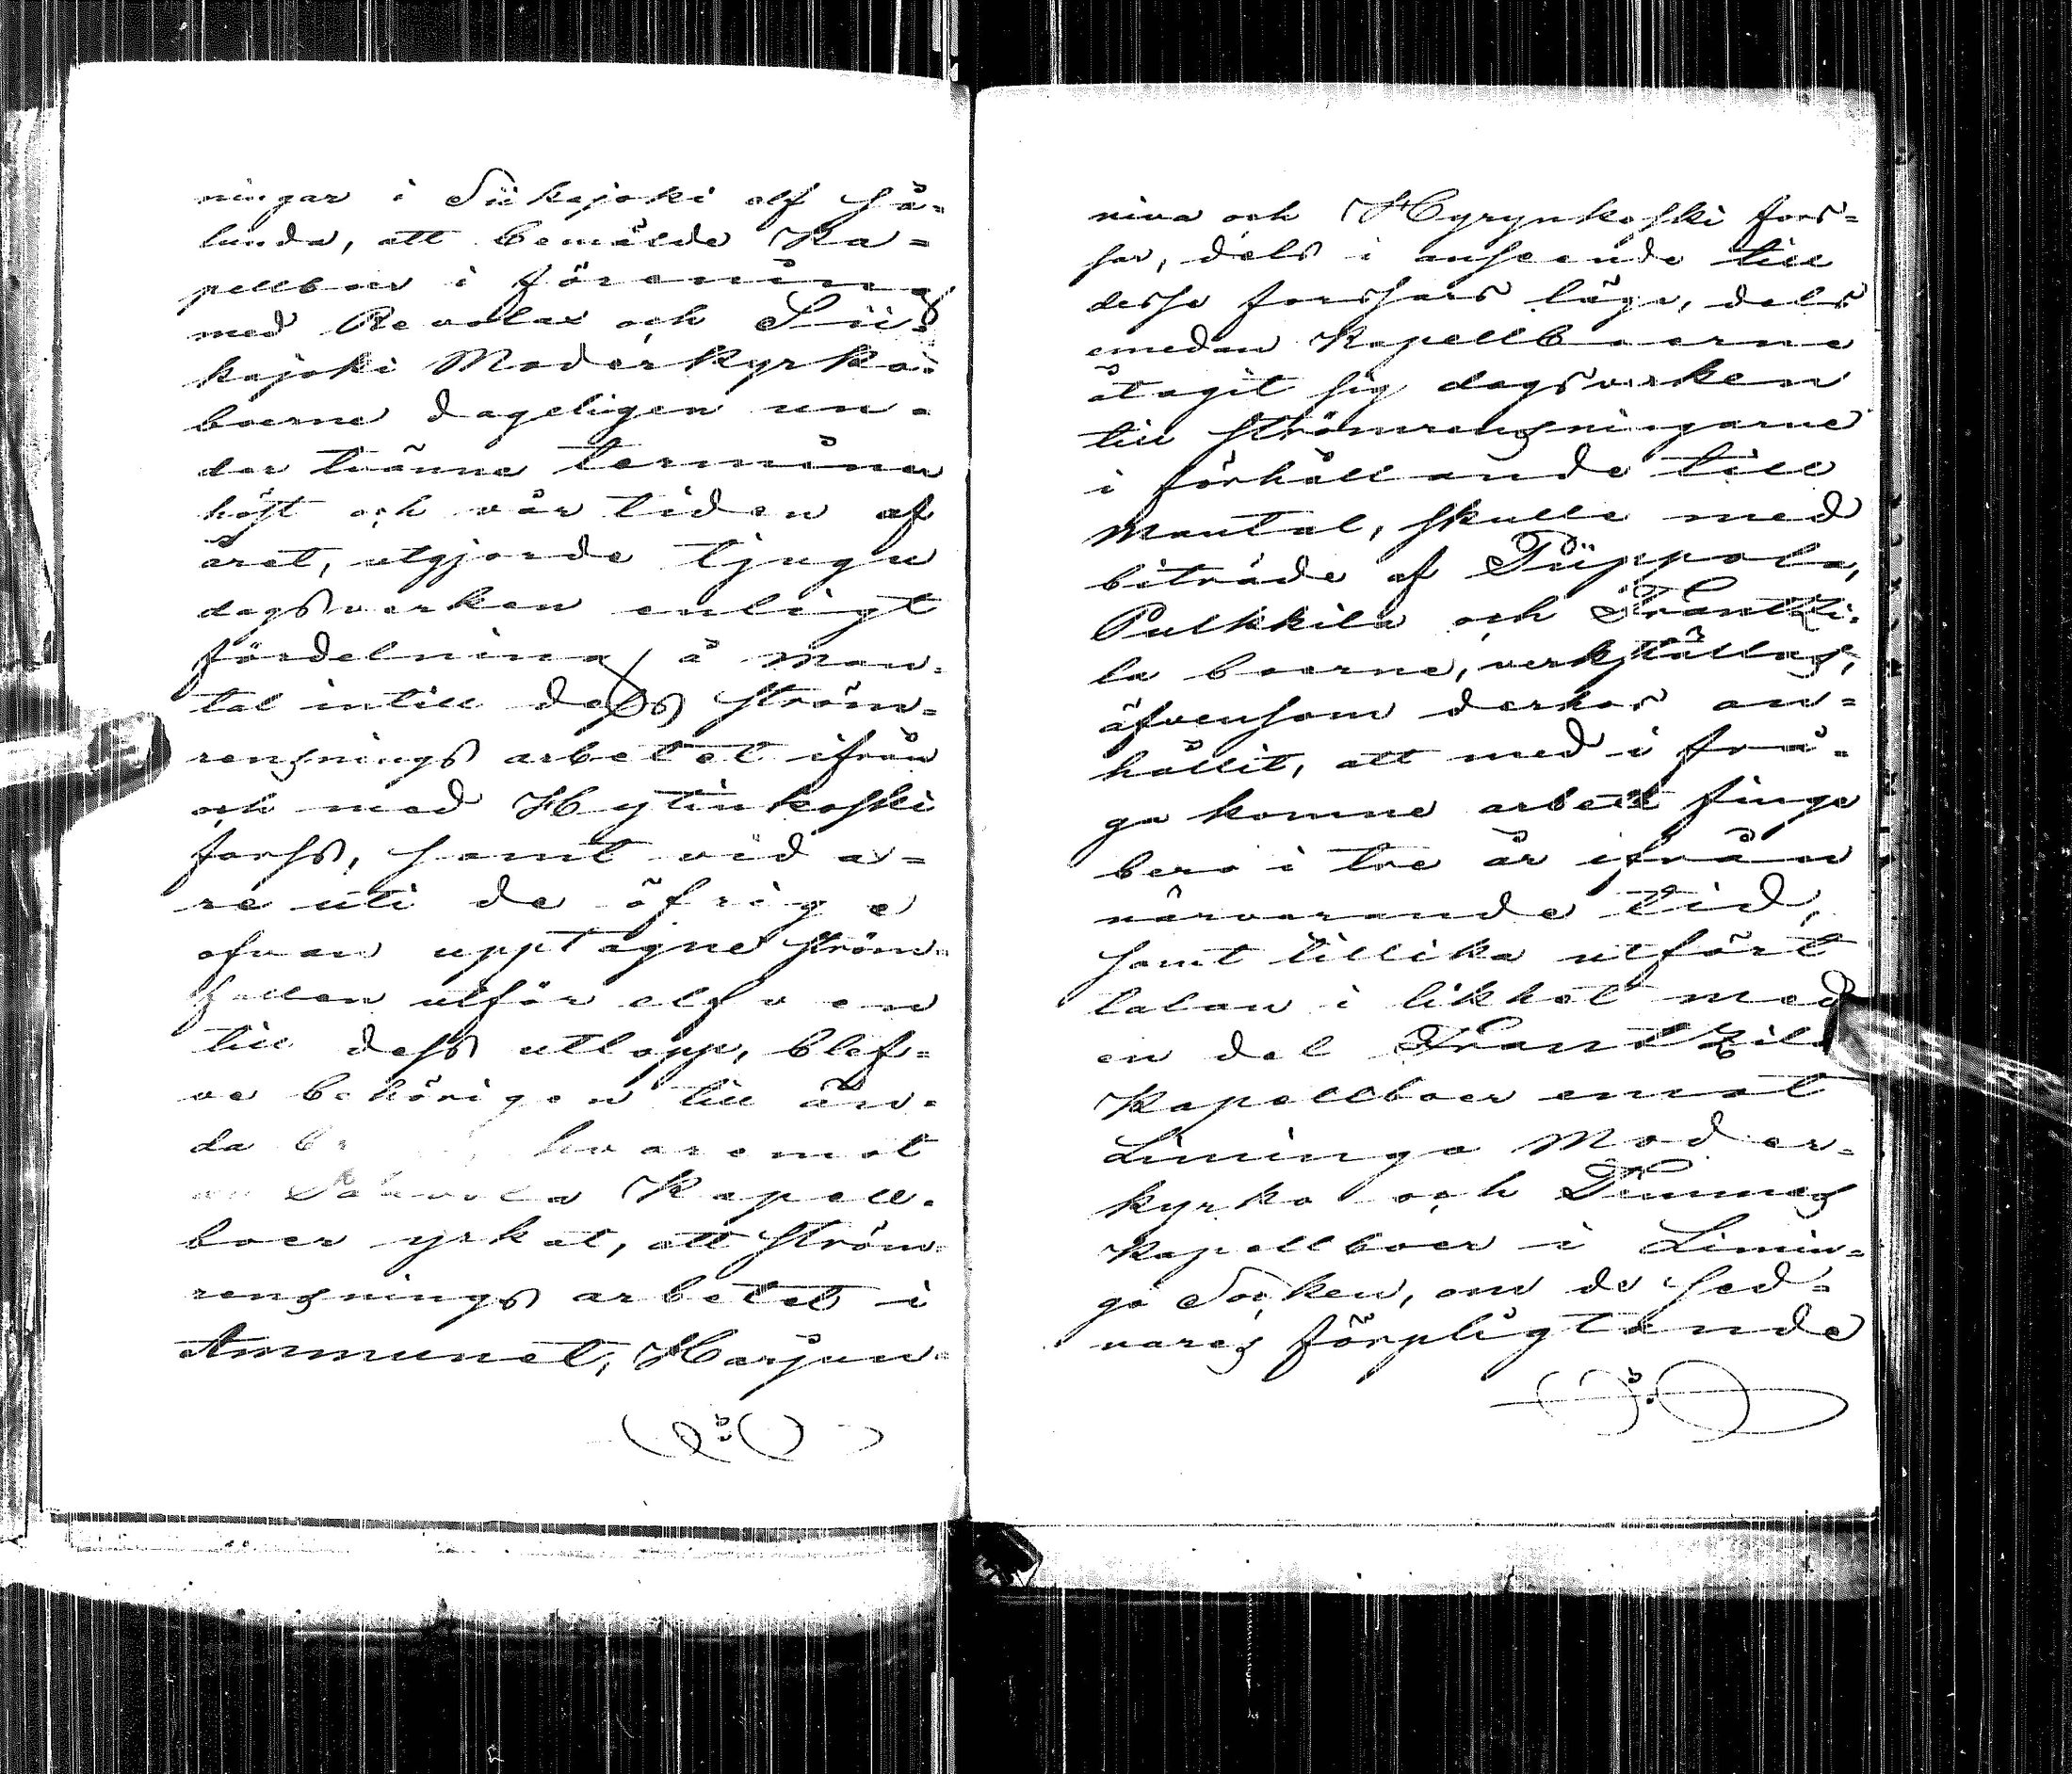 ningar i Siikajoki elf så-
lunda, att bemälde Ka-
pellboer i förening
med Revolax och Sii-
kajoki Moderkyrko-
boerne dageligen un-
der tvänne terminer
höst och vår tiden af
året, utgjorde tjugu
dagsverken enligt
fördelning å man-
tal intill dess ström-
rensnings arbetet ifrån
och med Hytinkoski
forss, samt vida-
re uti de öfrige
ofvan upptagne ström-
fallen utför elfven
till dess utlopp, blef-
ve behörigen till än-
da hvaremot
Paavola Kapell-
boer yrkat, att ström-
rensnings arbetet i
Ammunet, Harjun-
niva och Hyrynkoski fors-
sar, dels i anseende till
desse forssars läge, dels
emedan Kapellboerne
åtagit sig dagsverken
till strömrensningarne
i förhållande till
Mantal, skulle med
biträde af Piippola,
Pulkkila och Frantzi-
la boerne, verkställas,
äfvensom derhos an-
hållit, att med i frå-
ga komne arbete finge
bero i tre år ifrån
närvarande tid,
samt tillika utfört
talan i likhet med
en del Frantzila
Kapellboer emot
Limingo Moder-
kyrko och Temmes
Kapellboer i Limin-
go Socken, om de sed-
nares förpligtande